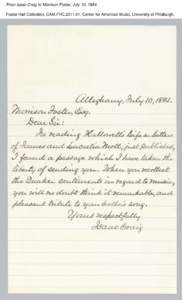 From Isaac Craig to Morrison Foster, July 10, 1884
Foster Hall Collection, CAM.FHC.2011.01, Center for American Music, University of Pittsburgh.
Allegheny, July 10, 1884.
Morrison Foster, Esq.
Dear Sir:
In reading Hallowell's Life & letters
of James and Lucretia Mott, just published,
I found a passage which I have taken the
liberty of sending you. When you recollect
the Quaker sentiments in regard to music,
you will no doubt think it remarkable, and
pleasant tribute to your brother's song.
Yours respectfully
Isaac Craig